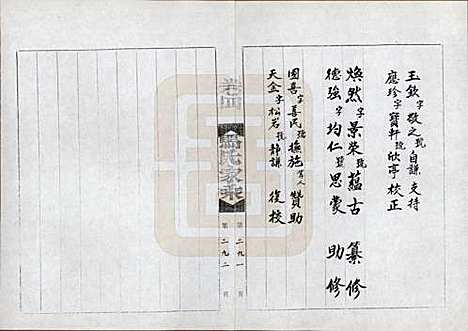 玉欽字敬之號自謙 支持
應珍字寶軒號欣亭 校正
煥然字景榮號蘊古 纂修
德強字均仁號思蒙 助修
國喜字善民號撫施 贊助
天金字松岩號靜謙 復校
卷四
馬氏家乘
第二九一頁
第二九二頁